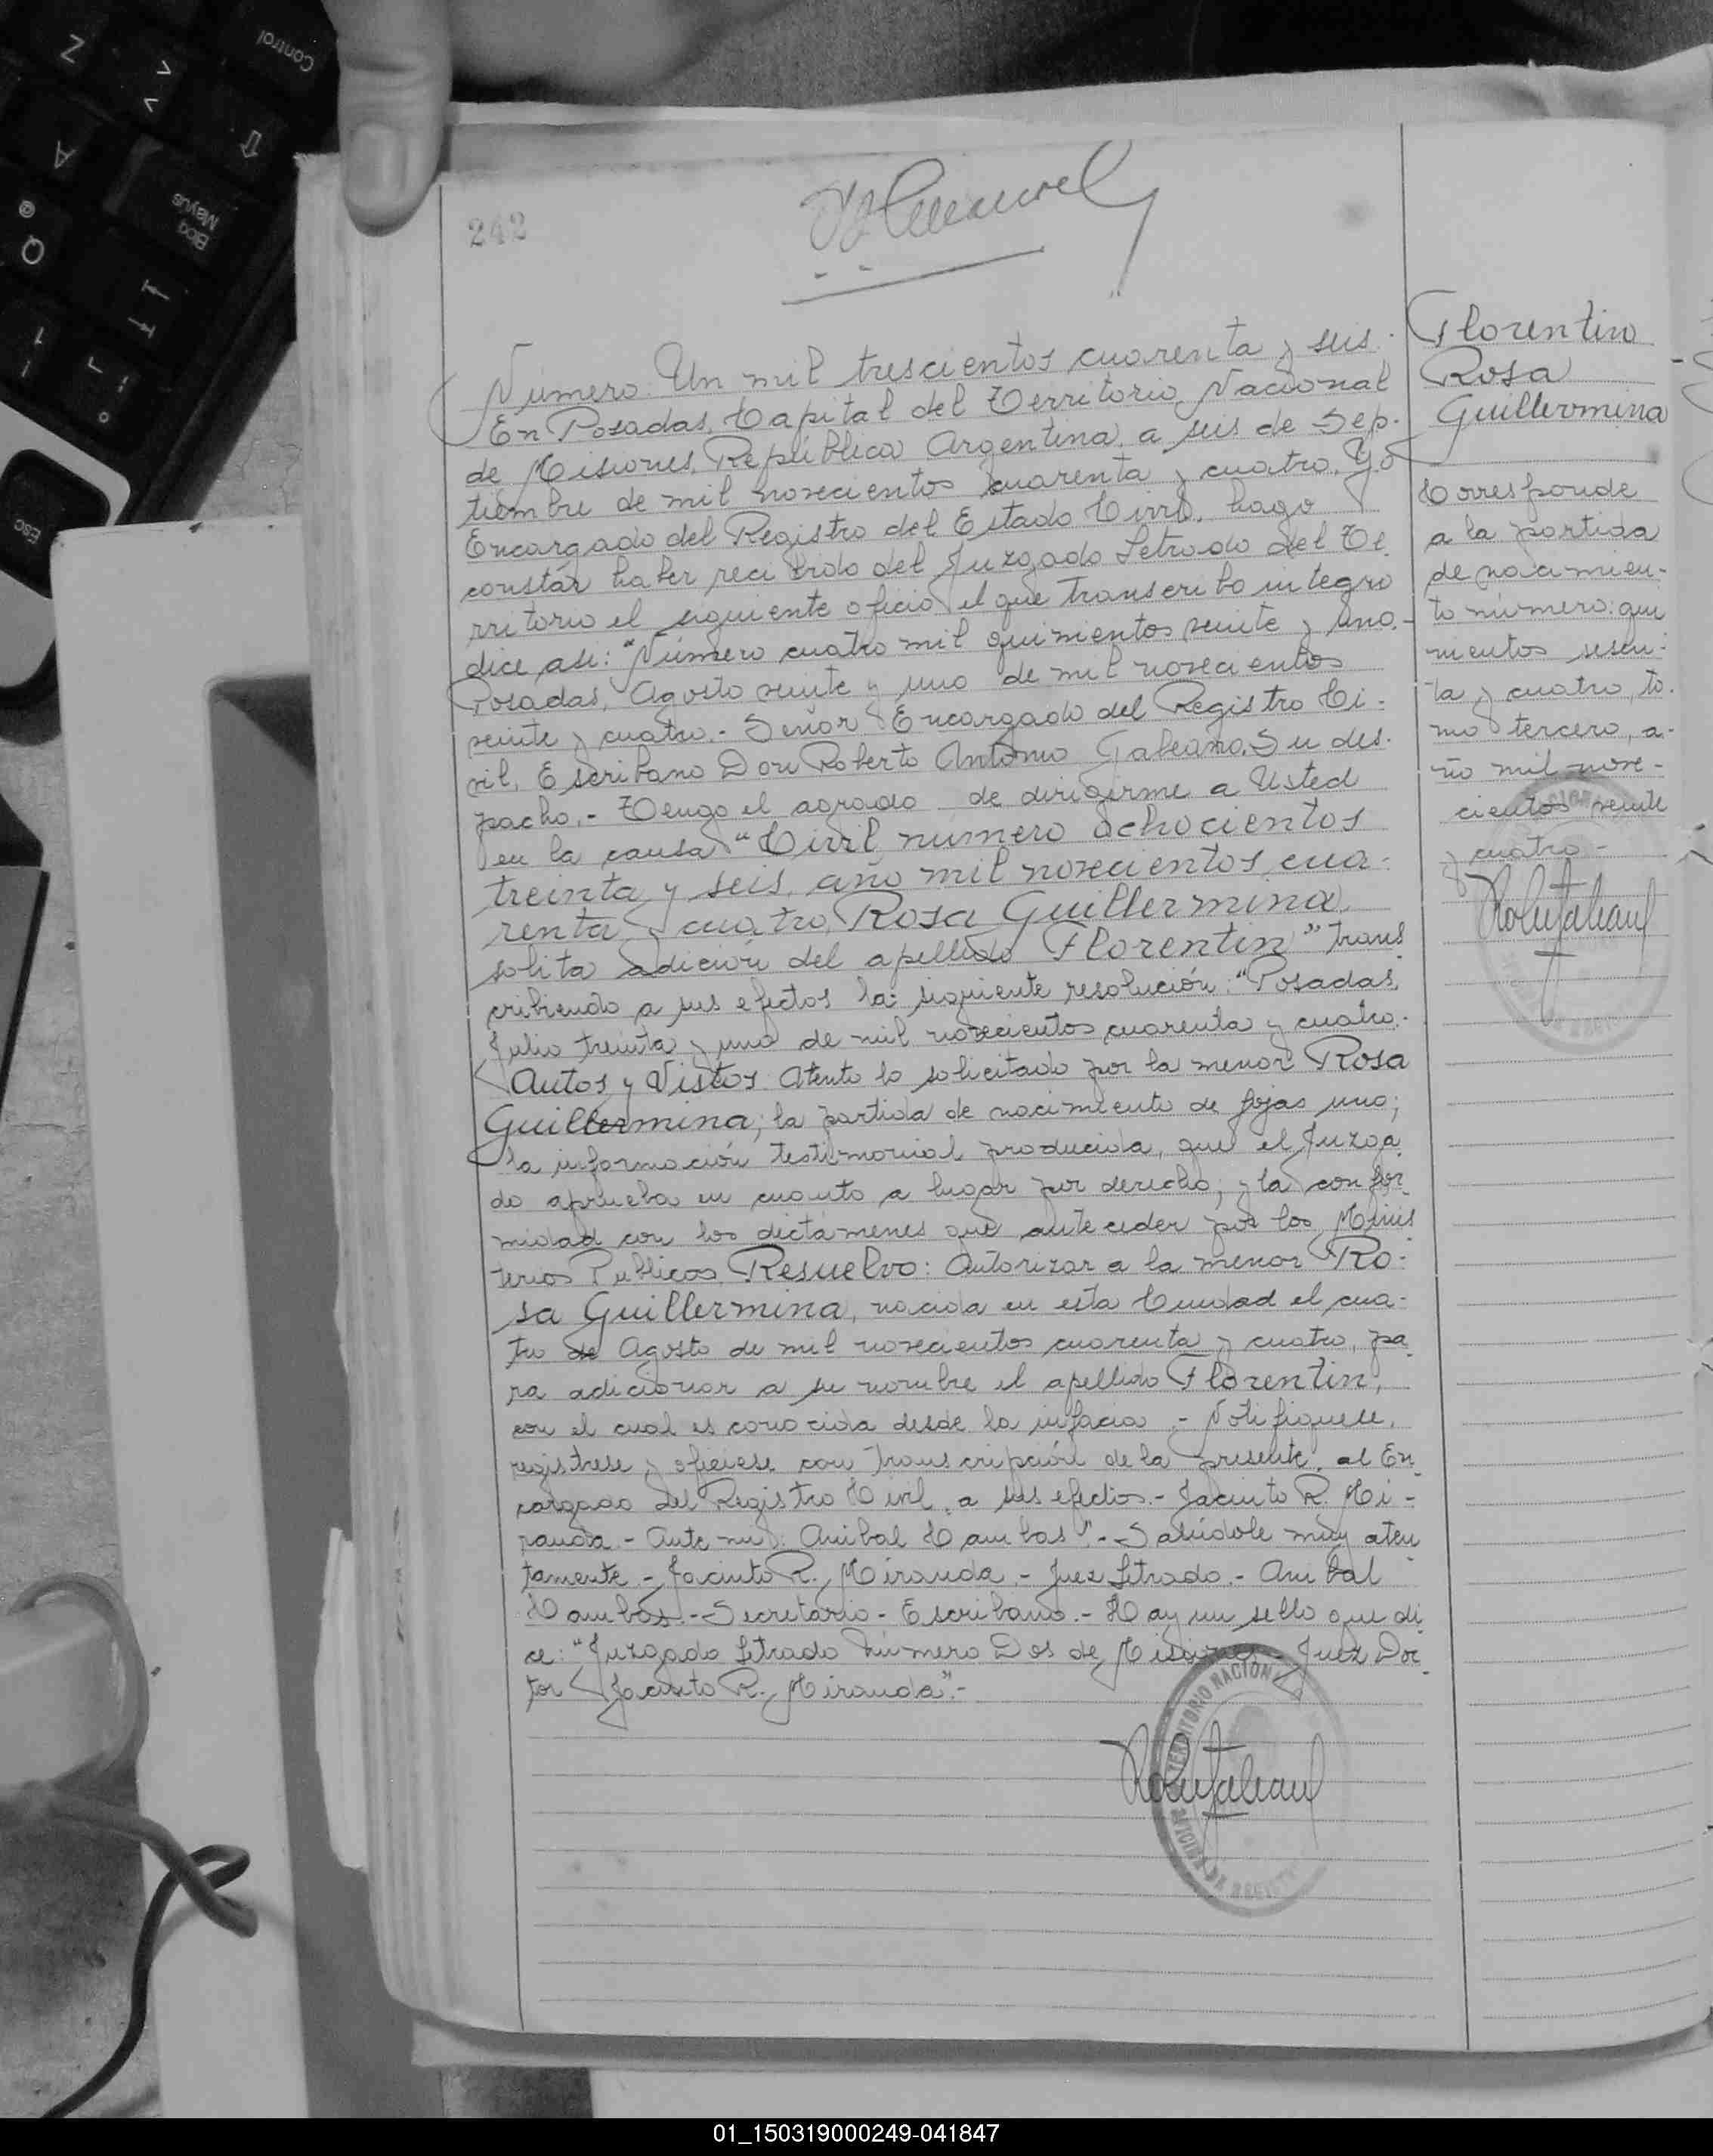 242
Número Un mil trescientos cuarenta y seis.
En Posadas, Capital del Territorio Nacional
de Misiones, República Argentina, a seis de Sep-
tiembre de mil novecientos cuarenta y cuatro. Yo
Encargado del Registro del Estado Civil, hago
constár haber recibido del Juzgado Letrado del Te-
rritorio el siguiente oficio el que transcribo integro
dice asi: "Número cuatro mil quinientos veinte y uno.-
Posadas, Agosto veinte y uno de mil novecientos
veinte y cuatro.- Señor Encargado del Registro Ci-
vil, Escribano Don Roberto Antonio Galeano. Su des-
pacho.- Tengo el agrado de dirigirme a Usted
en la causa "Civil número ochocientos
treinta y seis, año mil novecientos cua-
renta y cuatro, Rosa Guillermina
solita adición del apellido Florentin" trans
cribiendo a sus efectos la siguiente resolución: "Posadas,
Julio treinta y uno de mil novecientos cuarenta y cuatro.
Autos y Vistos: Atento lo solicitado por la menor Rosa
Guillermina; la partida de nacimiento de fojas uno;
la información testimonial producida, que el Juzga
do aprueba en cuanto a lugar por derecho; y la confor-
midad con los dictámenes que anteceden por los Minis
terios Publicos Resuelvo: Autorizar a la menor Ro-
sa Guillermina, nacida en esta Ciudad el cua-
tro de Agosto de mil novecientos cuarenta y cuatro, pa
ra adicionar a su nombre el apellido Florentin,
con el cual es conocida desde la infacia.- Notifiquese,
registrese y oficiese con transcripción de la presente, al En
cargado del Registro Civil, a sus efectos.- Jacinto R. Mi-
randa - Ante mi: Anibal Cambas".- Salúdole muy aten
tamente.- Jacinto R. Miranda.- Juez Letrado.- Anibal
Cambas.- Secretario - Escribano.- Hay un sello que di
ce: "Juzgado Letrado Número Dos de Misiones - Juez Doc-
tor Jacinto R. Miranda".-
TERRITORIO NACIONAL
Florentin
Rosa
Guillermina
Corresponde
a la partida
de nacimien-
to número: qui
nientos sesen-
ta y cuatro, to-
mo tercero, a-
ño mil nove-
cientos veinte
y cuatro-
Control
Z
A
Q
Bloq
Mayus
Esc
01_150319000249-041847